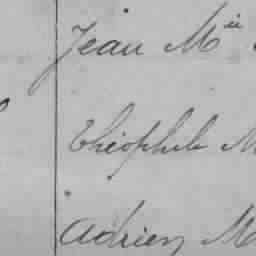 Jean M^ie
Théophile M
Adrien M